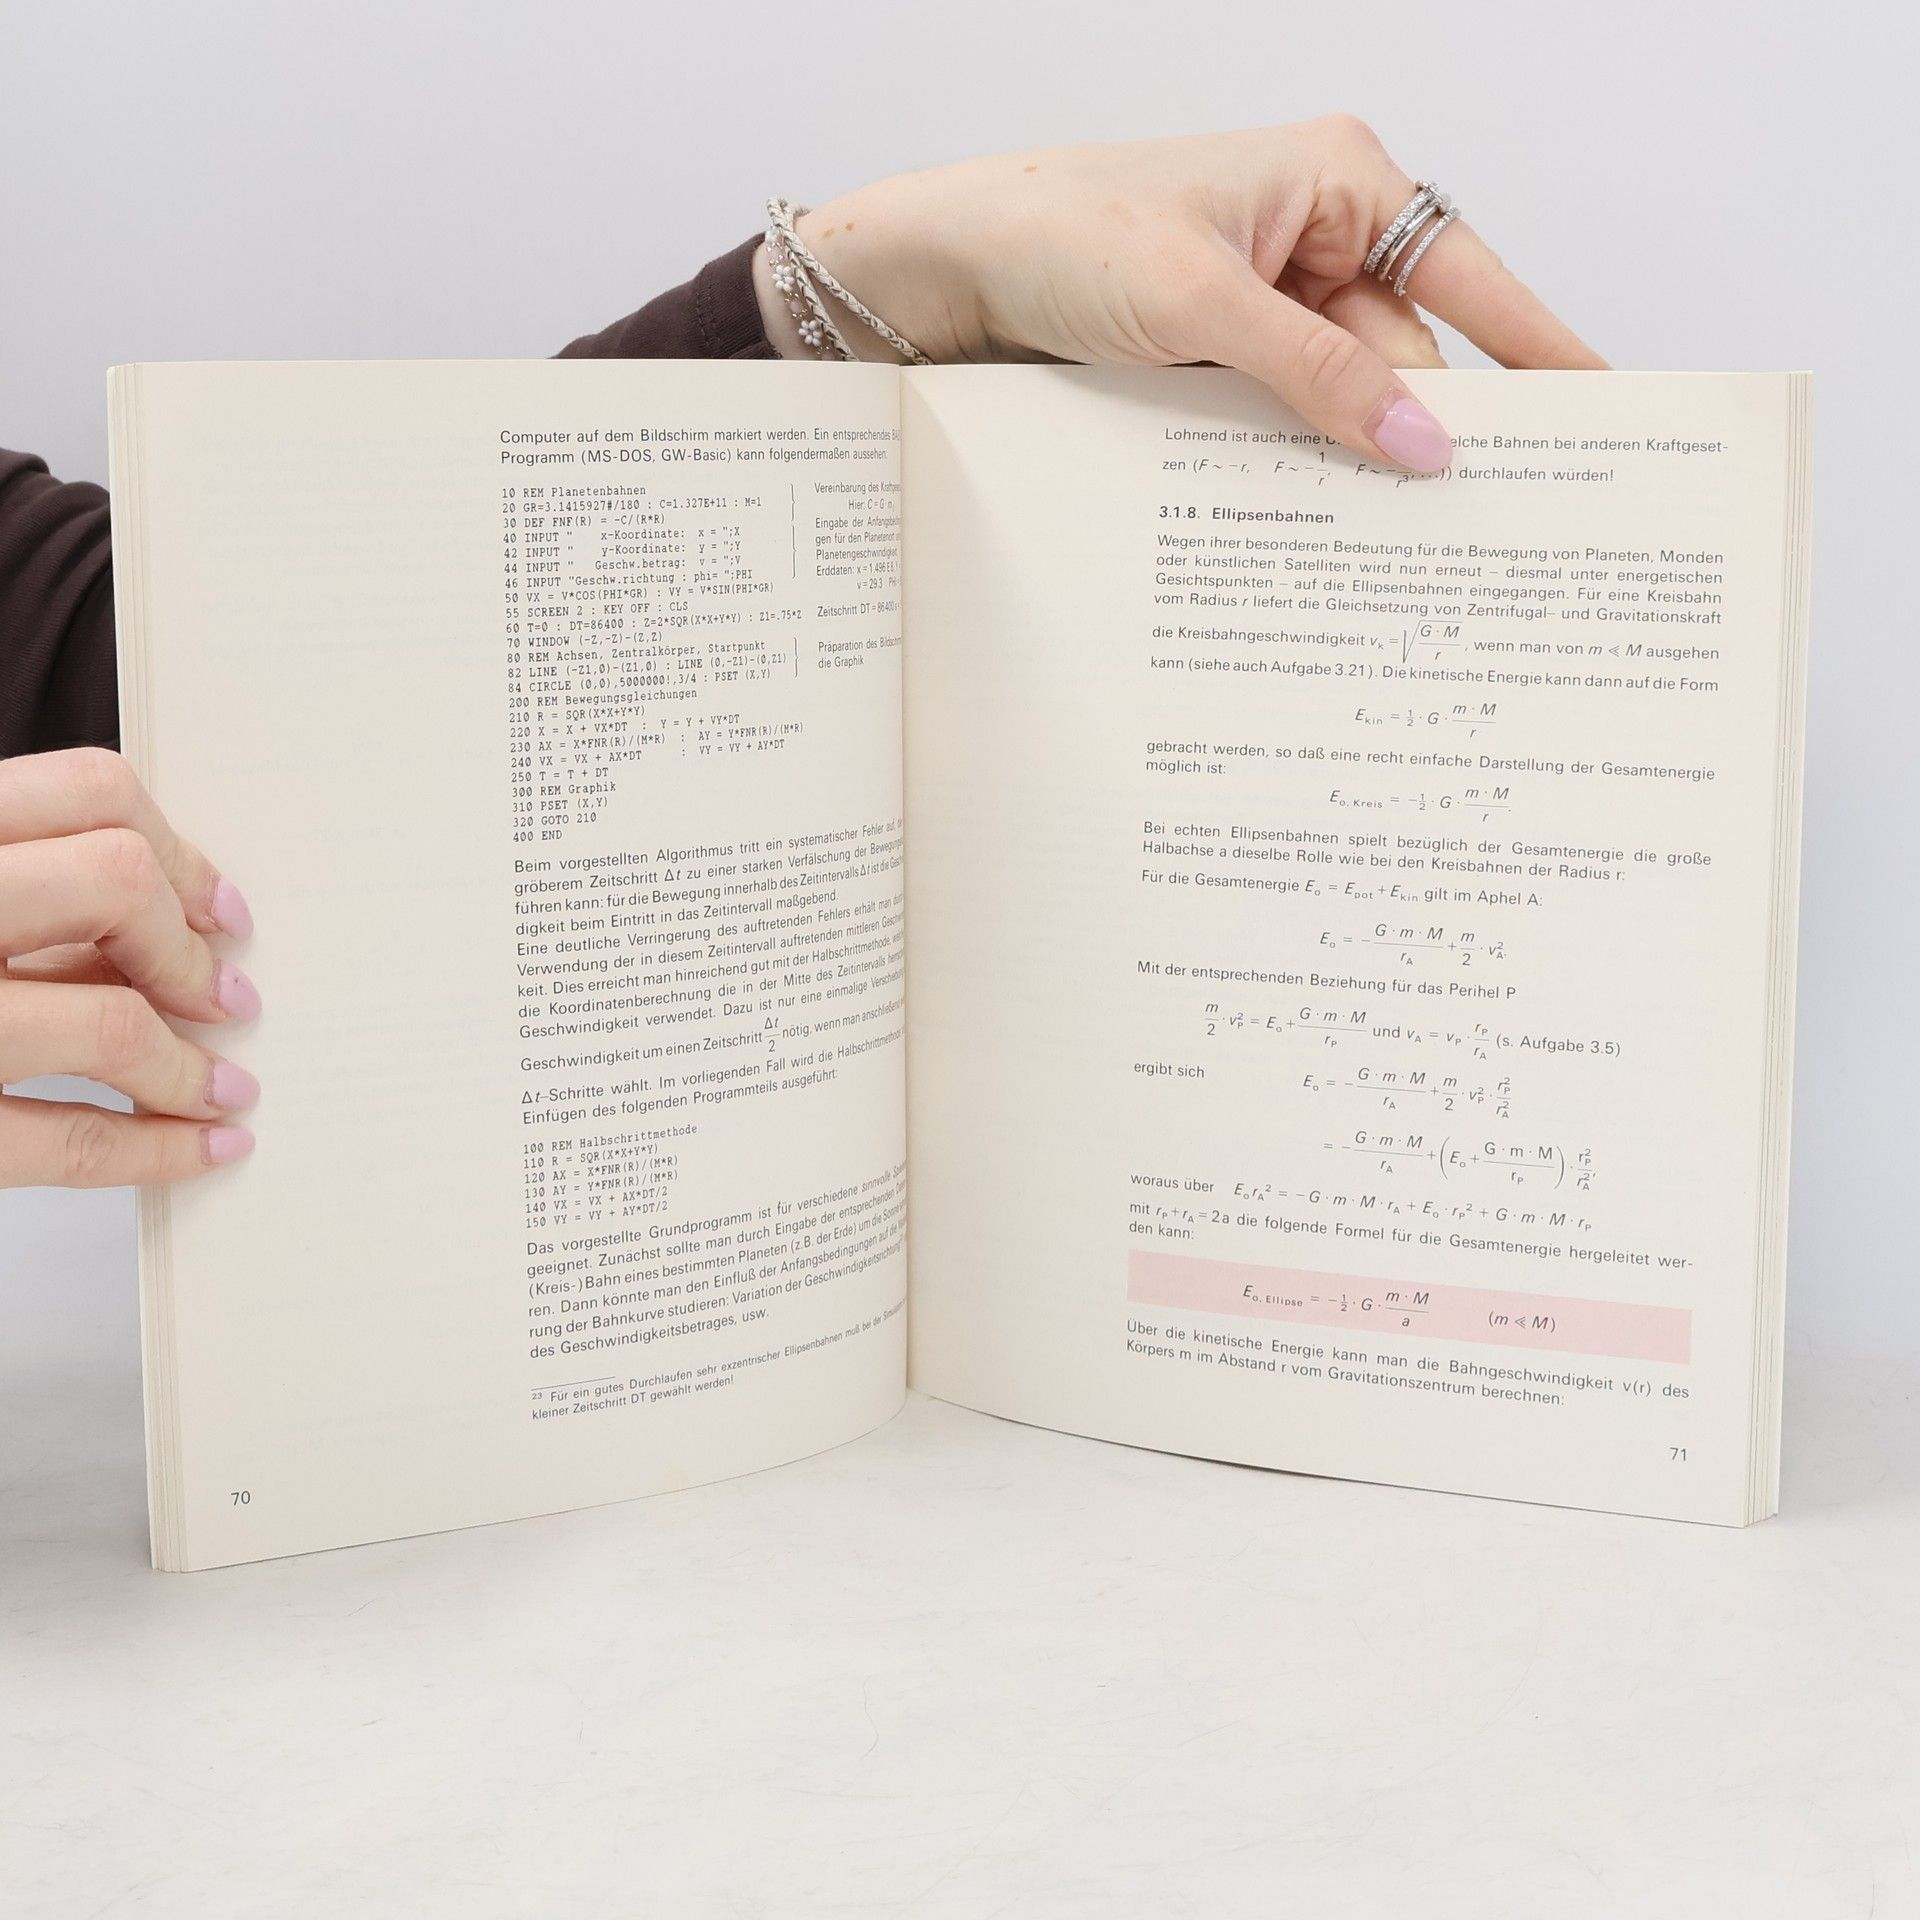 Computer auf dem Bildschirm markiert werden. Ein entsprechendes
Programm (MS-DOS, GW-Basic) kann folgendermaßen aussehen:
10 REM Planetenbahnen
20 GR=3.1415927#/180 : C=1.327E+11 : M=1
30 DEF FNF(R) = -C/(R*R)
40 INPUT " x-Koordinate: x = ";X
42 INPUT " y-Koordinate: y = ";Y
44 INPUT " Geschw.betrag: v = ";V
46 INPUT "Geschw.richtung : phi= ";PHI
50 VX = V*COS(PHI*GR) : VY = V*SIN(PHI*GR)
55 SCREEN 2 : KEY OFF : CLS
60 T=0 : DT=86400 : Z=2*SQR(X*X+Y*Y) : Z1=.75*Z
70 WINDOW (-Z,-Z)-(Z,Z)
80 REM Achsen, Zentralkörper, Startpunkt
82 LINE (-Z1,0)-(Z1,0) : LINE (0,-Z1)-(0,Z1)
84 CIRCLE (0,0),5000000!,3/4 : PSET (X,Y)
200 REM Bewegungsgleichungen
210 R = SQR(X*X+Y*Y)
220 X = X + VX*DT : Y = Y + VY*DT
230 AX = X*FNR(R)/(M*R) : AY = Y*FNR(R)/(M*R)
240 VX = VX + AX*DT : VY = VY + AY*DT
250 T = T + DT
300 REM Graphik
310 PSET (X,Y)
320 GOTO 210
400 END
Vereinbarung des
Hier: C = G·m
Eingabe der
gen für den Planetenort
Planetengeschwindigkeit
Erddaten: x = 1.496 E 8,
v = 29.3
Zeitschritt DT = 86400
Präparation des
die Graphik
Beim vorgestellten Algorithmus tritt ein systematischer Fehler auf,
gröberem Zeitschritt Δt zu einer starken Verfälschung der
führen kann: für die Bewegung innerhalb des Zeitintervalls Δt ist die
digkeit beim Eintritt in das Zeitintervall maßgebend.
Eine deutliche Verringerung des auftretenden Fehlers erhält man
Verwendung der in diesem Zeitintervall auftretenden mittleren
keit. Dies erreicht man hinreichend gut mit der Halbschrittmethode,
die Koordinatenberechnung die in der Mitte des Zeitintervalls
Geschwindigkeit verwendet. Dazu ist nur eine einmalige
Geschwindigkeit um einen Zeitschritt Δt/2 nötig, wenn man anschließend
Δt–Schritte wählt. Im vorliegenden Fall wird die Halbschrittmethode
Einfügen des folgenden Programmteils ausgeführt:
100 REM Halbschrittmethode
110 R = SQR(X*X+Y*Y)
120 AX = X*FNR(R)/(M*R)
130 AY = Y*FNR(R)/(M*R)
140 VX = VX + AX*DT/2
150 VY = VY + AY*DT/2
Das vorgestellte Grundprogramm ist für verschiedene sinnvolle
geeignet. Zunächst sollte man durch Eingabe der entsprechenden
(Kreis-) Bahn eines bestimmten Planeten (z.B. der Erde) um die Sonne
ren. Dann könnte man den Einfluß der Anfangsbedingungen auf die
rung der Bahnkurve studieren: Variation der Geschwindigkeitsrichtung
des Geschwindigkeitsbetrages, usw.
23 Für ein gutes Durchlaufen sehr exzentrischer Ellipsenbahnen muß bei der
kleiner Zeitschritt DT gewählt werden!
70
Lohnend ist auch eine Bahnen bei anderen Kraftgeset-
zen (F ~ −r, F ~ −1/r, F ~ −1/r³, ...)) durchlaufen würden!
3.1.8. Ellipsenbahnen
Wegen ihrer besonderen Bedeutung für die Bewegung von Planeten, Monden
oder künstlichen Satelliten wird nun erneut – diesmal unter energetischen
Gesichtspunkten – auf die Ellipsenbahnen eingegangen. Für eine Kreisbahn
vom Radius r liefert die Gleichsetzung von Zentrifugal– und Gravitationskraft
die Kreisbahngeschwindigkeit vₖ = √(G · M / r), wenn man von m ≪ M ausgehen
kann (siehe auch Aufgabe 3.21). Die kinetische Energie kann dann auf die Form
E_kin = ½ · G · (m · M)/r
gebracht werden, so daß eine recht einfache Darstellung der Gesamtenergie
möglich ist:
E_o, Kreis = −½ · G · (m · M)/r.
Bei echten Ellipsenbahnen spielt bezüglich der Gesamtenergie die große
Halbachse a dieselbe Rolle wie bei den Kreisbahnen der Radius r:
Für die Gesamtenergie E_o = E_pot + E_kin gilt im Aphel A:
E_o = −(G · m · M)/r_A + m/2 · v_A².
Mit der entsprechenden Beziehung für das Perihel P
m/2 · v_P² = E_o + (G · m · M)/r_P und v_A = v_P · r_P/r_A (s. Aufgabe 3.5)
ergibt sich E_o = −(G · m · M)/r_A + m/2 · v_P² · r_P²/r_A²
= −(G · m · M)/r_A + (E_o + (G · m · M)/r_P) · r_P²/r_A²,
woraus über E_o r_A² = −G · m · M · r_A + E_o · r_P² + G · m · M · r_P
mit r_P + r_A = 2a die folgende Formel für die Gesamtenergie hergeleitet wer-
den kann:
E_o, Ellipse = −½ · G · (m · M)/a (m ≪ M)
Über die kinetische Energie kann man die Bahngeschwindigkeit v(r) des
Körpers m im Abstand r vom Gravitationszentrum berechnen:
71